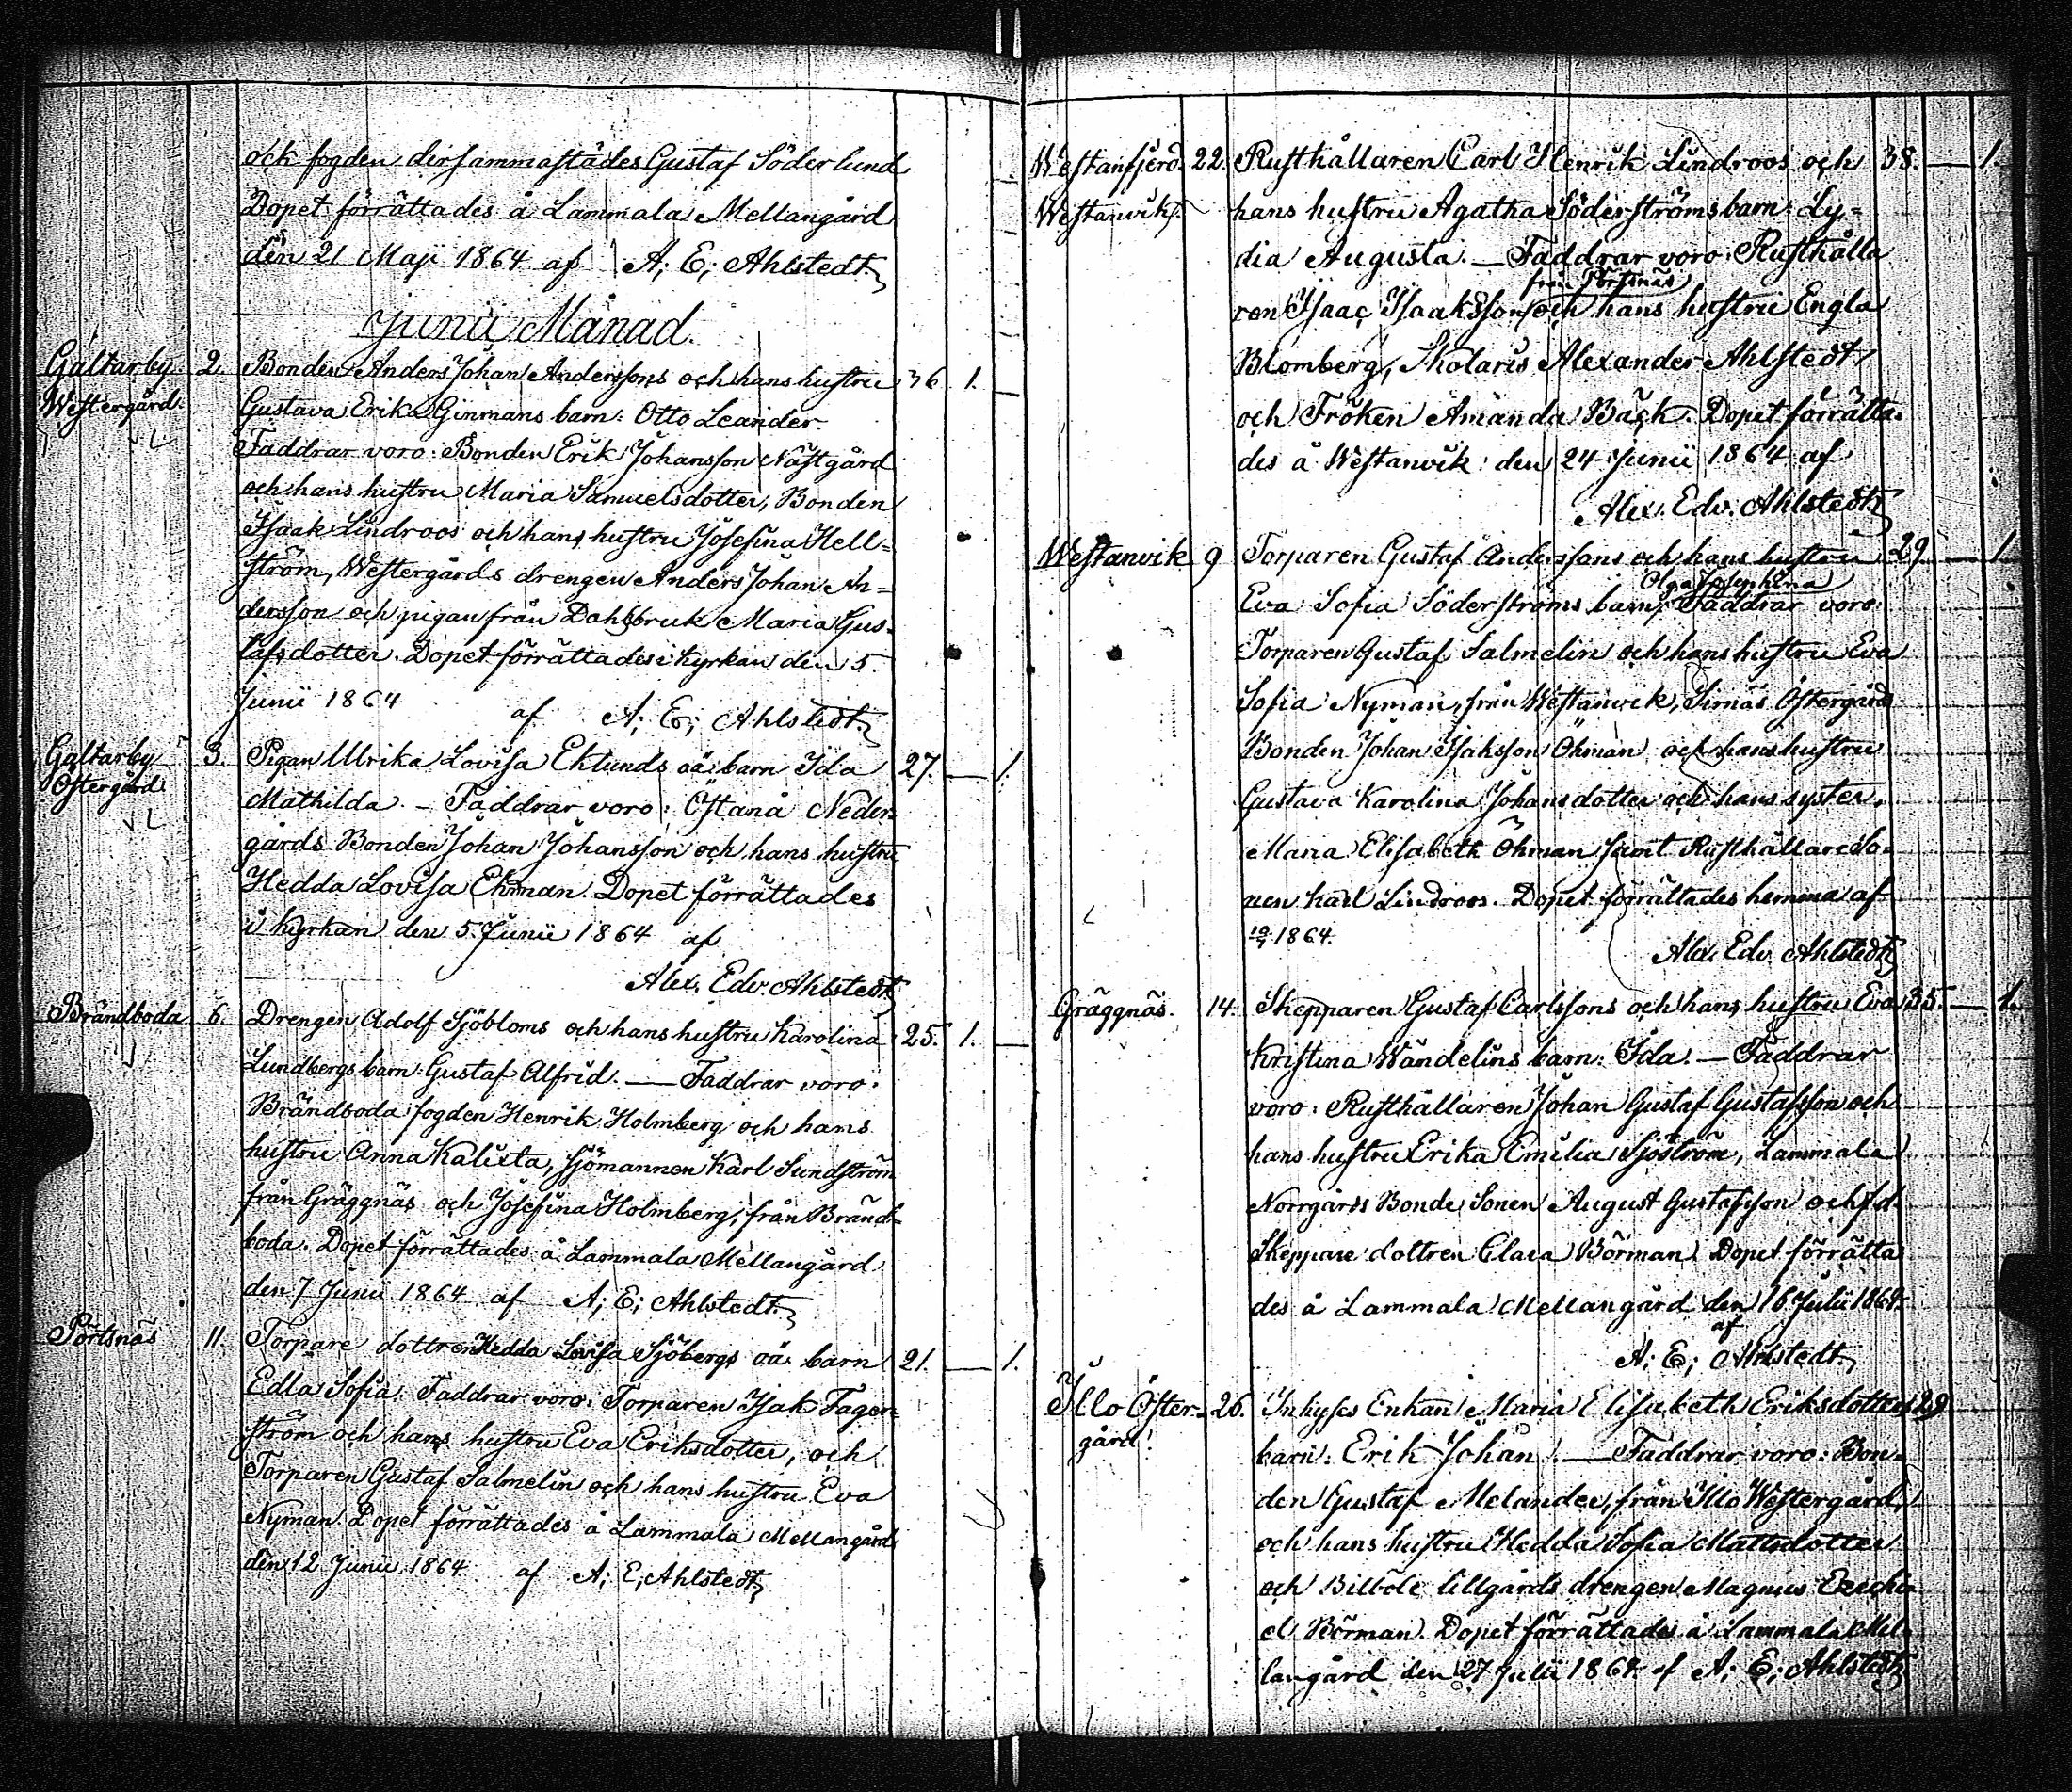 och fogden dersammastädes Gustaf Söderlund
Dopet förrättades å Lammala Mellangård
den 21 Maji 1864 af A; E; Ahlstedt.
Junii Månad.
Galtarby 2. Bonden Anders Johan Anderssons och hans hustru 36 1. —
Westergård. Gustava Erika Ginmans barn: Otto Leander.
Faddrar voro: Bonden Erik Johansson Nästgård
och hans hustru Maria Samuelsdotter, Bonden
Isaak Lindroos och hans hustru Josefina Hell=
ström, Westergårds drengen Anders Johan An=
dersson och pigan från Dahlsbruk Maria Gus=
tafsdotter. Dopet förrättades i Kyrkan den 5.
Junii 1864 af A; E; Ahlstedt.
Galtarby 3. Pigan Ulrika Lovisa Eklunds oä: barn Ida 27. — 1.
Östergård Mathilda. — Faddrar voro: Östanå Neder=
gårds Bonden Johan Johansson och hans hustru
Hedda Lovisa Ekman. Dopet förrättades
i Kyrkan den 5. Junii 1864 af
Alex. Edv. Ahlstedt.
Brändboda 6. Drengen Adolf Sjöbloms och hans hustru Karolina 25. 1. —
Lundbergs barn: Gustaf Alfrid. — Faddrar voro:
Brändboda fogden Henrik Holmberg och hans
hustru Anna Kalixta, sjömannen Karl Sundström
från Gräggnäs och Josefina Holmberg, från Bränd=
boda. Dopet förrättades å Lammala Mellangård
den 7 Junii 1864 af A; E; Ahlstedt.
Pörtsnäs 11. Torpare dottren Hedda Lovisa Sjöbergs oä: barn 21. — 1.
Edla Sofia. Faddrar voro: Torparen Isak Fager=
ström och hans hustru Eva Eriksdotter, och
Torparen Gustaf Salmelin och hans hustru Eva
Nyman. Dopet förrättades å Lammala Mellangård
den 12 Junii 1864 af A; E; Ahlstedt.
Westanfjerd. 22. Rusthållaren Carl Henrik Lindroos och 38. — 1.
Westanvik. hans hustru Agatha Söderströms barn: Ly=
dia Augusta. — Faddrar voro: Rusthålla
från Pörtsnäs
ren Isaac Isaksson och hans hustru Engla
Blomberg, Skolaris Alexander Ahlstedt
och Fröken Amanda Bäck. Dopet förrätta=
des å Westanvik: den 24 Junii 1864 af
Alex. Edv. Ahlstedt.
Westanvik 9 Torparen Gustaf Anderssons och hans hustru 29. — 1
Olga Josephina
Eva Sofia Söderströms barn: Faddrar voro:
Torparen Gustaf Salmelin och hans hustru Eva
Sofia Nyman, från Westanvik, Sirnäs Östergård
Bonden Johan Isaksson Öhman och hans hustru
Gustava Karolina Johansdotter och hans syster
Maria Elisabeth Öhman samt Rusthållare So=
nen Karl Lindroos. Dopet förrättades hemma af
1864. Alex. Edv. Ahlstedt
Gräggnäs. 14. Skepparen Gustaf Carlssons och hans hustru Eva 35. — 1.
Kristina Wandelins barn: Ida. — Faddrar
voro: Rusthållaren Johan Gustaf Gustafsson och
hans hustru Erika Emilia Sjöström, Lammala
Norrgårds Bonde Sonen August Gustafsson och fd.
Skeppare dottren Clara Börman. Dopet förrätta
des å Lammala Mellangård den 16 Julii 1864.
af
A; E; Ahlstedt.
Illo Öster= 26. Inhyses Enkan Maria Elisabeth Eriksdotters 29
gård. barn: Erik Johan. — Faddrar voro: Bon=
den Gustaf Melander, från Illo Westergård,
och hans hustru Hedda Sofia Mattsdotter
och Billböle lillgårds drengen Magnus Ezechi=
el Börman. Dopet förrättades å Lammala Mel=
langård den 27 Julii 1864 af A; E; Ahlstedt